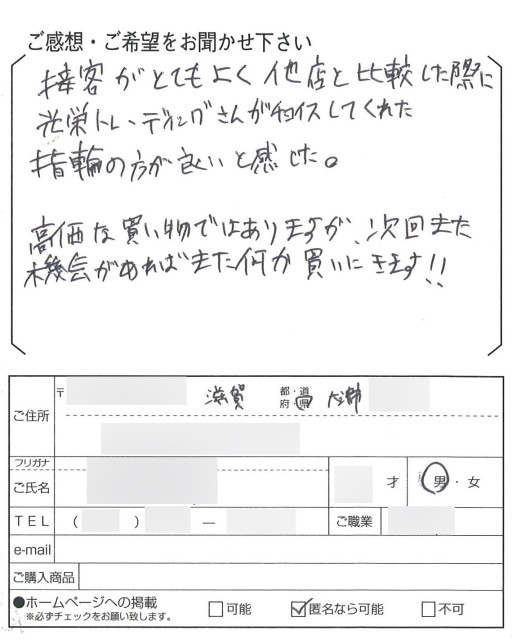 ご感想・ご希望をお聞かせ下さい
接客がとてもよく他店と比較した際に
光栄トレーディングさんがチョイスしてくれた
指輪の方が良いと感じた。
高価な買い物ではありますが、次回また
機会があればまた何か買いにきます!!
ご住所 〒 滋賀 都・道 府・県 大津
フリガナ
ご氏名 才 男・女
TEL ( ) — ご職業
e-mail
ご購入商品
●ホームページへの掲載 □可能 ☑匿名なら可能 □不可
※必ずチェックをお願い致します。